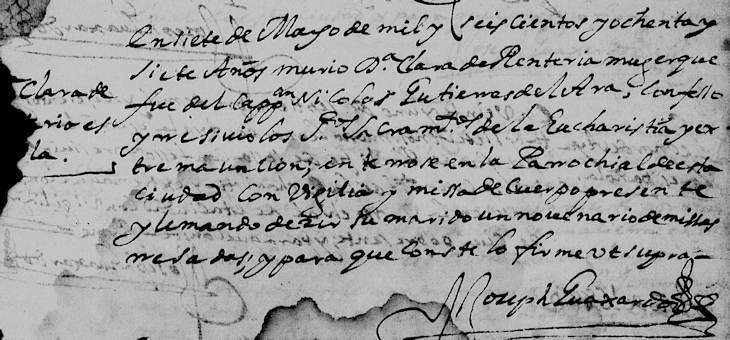 En siete de Mayo de mil y seiscientos y ochenta y
siete Años murio Dª Clara de Renteria muger que
fue del Cappan Nicolas Gutierres del Ara, Confesso
y rresivio los Stos Sacramtos de la Eucharistia y ex
trema uncion; enterrose en la Parrochial de esta
ciudad con Vigilia y missa de Cuerpo presente
y le mando dezir su marido un novenario de missas
rresadas; y para que Conste lo firme ut supra
Clara de
teria es
la.
Joseph Guaxardo